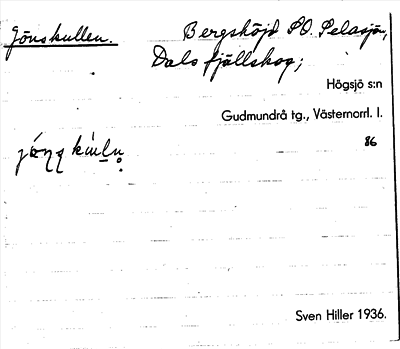 Jönskullen. Bergshöjd SO. Pelasjön,
Dals fjällskog;
Högsjö s:n
Gudmundrå tg., Västernorrl. l.
86
Sven Hiller 1936.